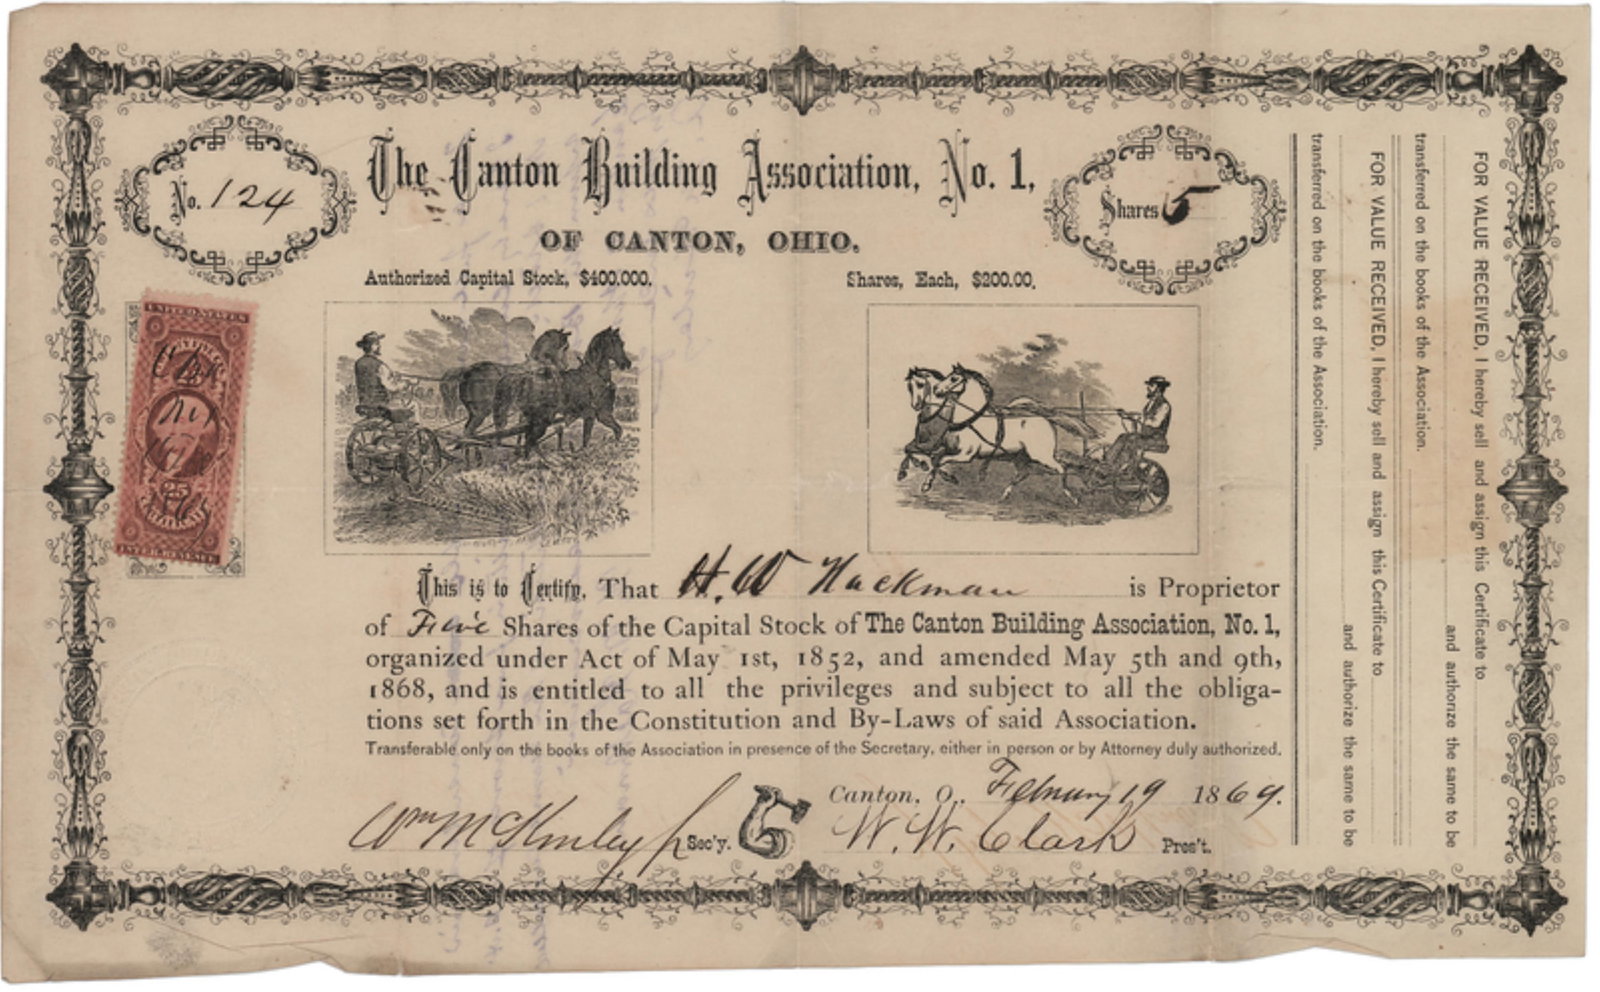 No. 124
The Canton Building Association, No. 1,
Shares 5
OF CANTON, OHIO.
Authorized Capital Stock, $400.000.
Shares, Each, $200.00.
UNITED STATES
INTER. REVENUE
This is to Certify, That H. W Hackman is Proprietor
of Five Shares of the Capital Stock of The Canton Building Association, No. 1,
organized under Act of May 1st, 1852, and amended May 5th and 9th,
1868, and is entitled to all the privileges and subject to all the obliga-
tions set forth in the Constitution and By-Laws of said Association.
Transferable only on the books of the Association in presence of the Secretary, either in person or by Attorney duly authorized.
Canton, O. February 19 1869.
Wm McKinley Jr Sec'y.
W. W. Clark Pres't.
FOR VALUE RECEIVED, I hereby sell and assign this Certificate to
and authorize the same to be
transferred on the books of the Association.
FOR VALUE RECEIVED, I hereby sell and assign this Certificate to
and authorize the same to be
transferred on the books of the Association.